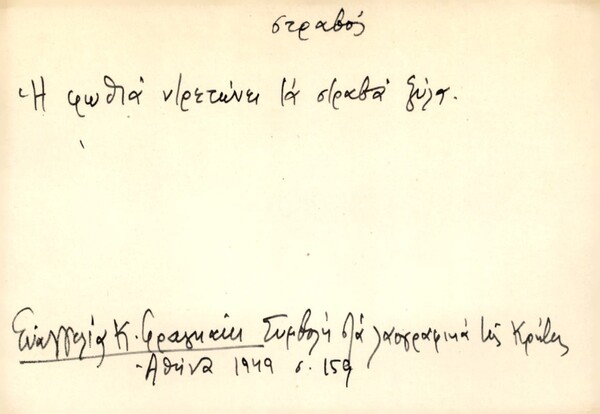 στραβός
Ἡ φωθιά ντρετώνει τά στραβά ξύλα.
Εὐαγγελία Κ. Φραγκάκι Συμβολή στά λαογραφικά τῆς Κρήτης
Ἀθήνα 1949 σ. 159